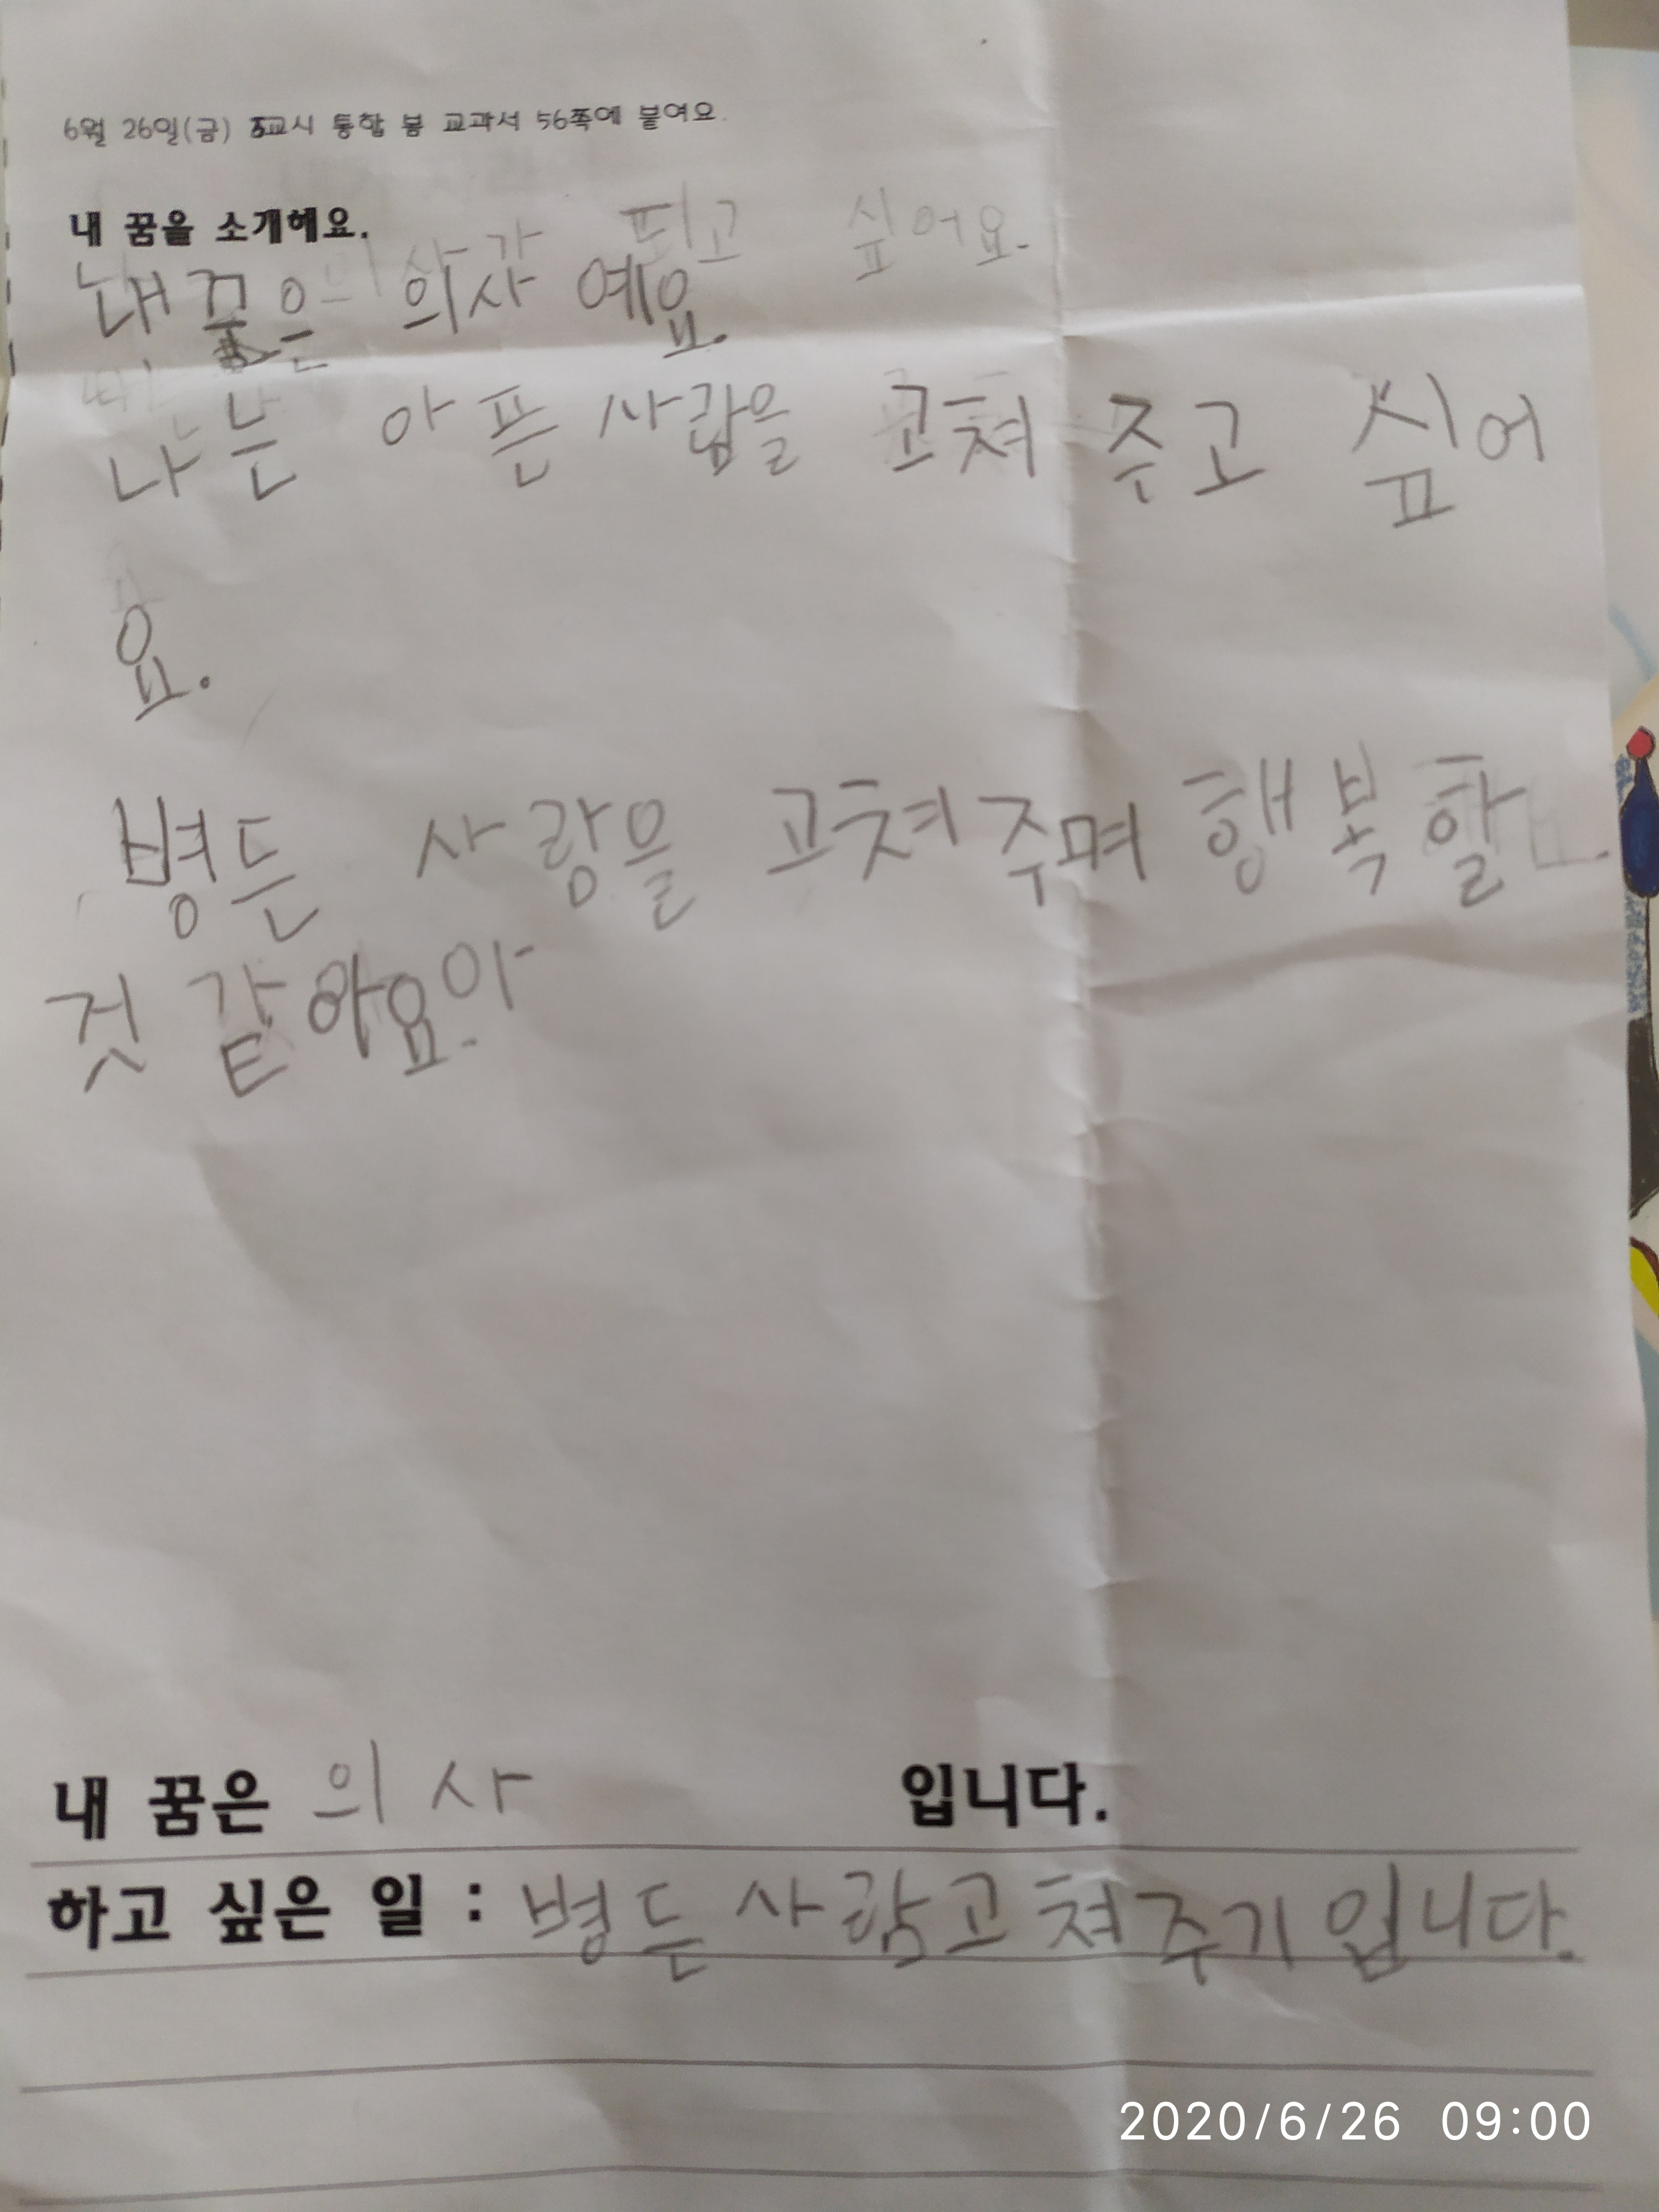 6월 26일(금) 5교시 통합 봄 교과서 56쪽에 붙여요.
내 꿈을 소개해요.
의사가 되고 싶어요.
내 꿈은 의사 예요.
나는 아픈 사람을 고쳐 주고 싶어
요.
병든 사람을 고쳐주며 행복할
것 같아요아
내 꿈은 의사 입니다.
하고 싶은 일 : 병든 사람고쳐주기입니다.
2020/6/26 09:00